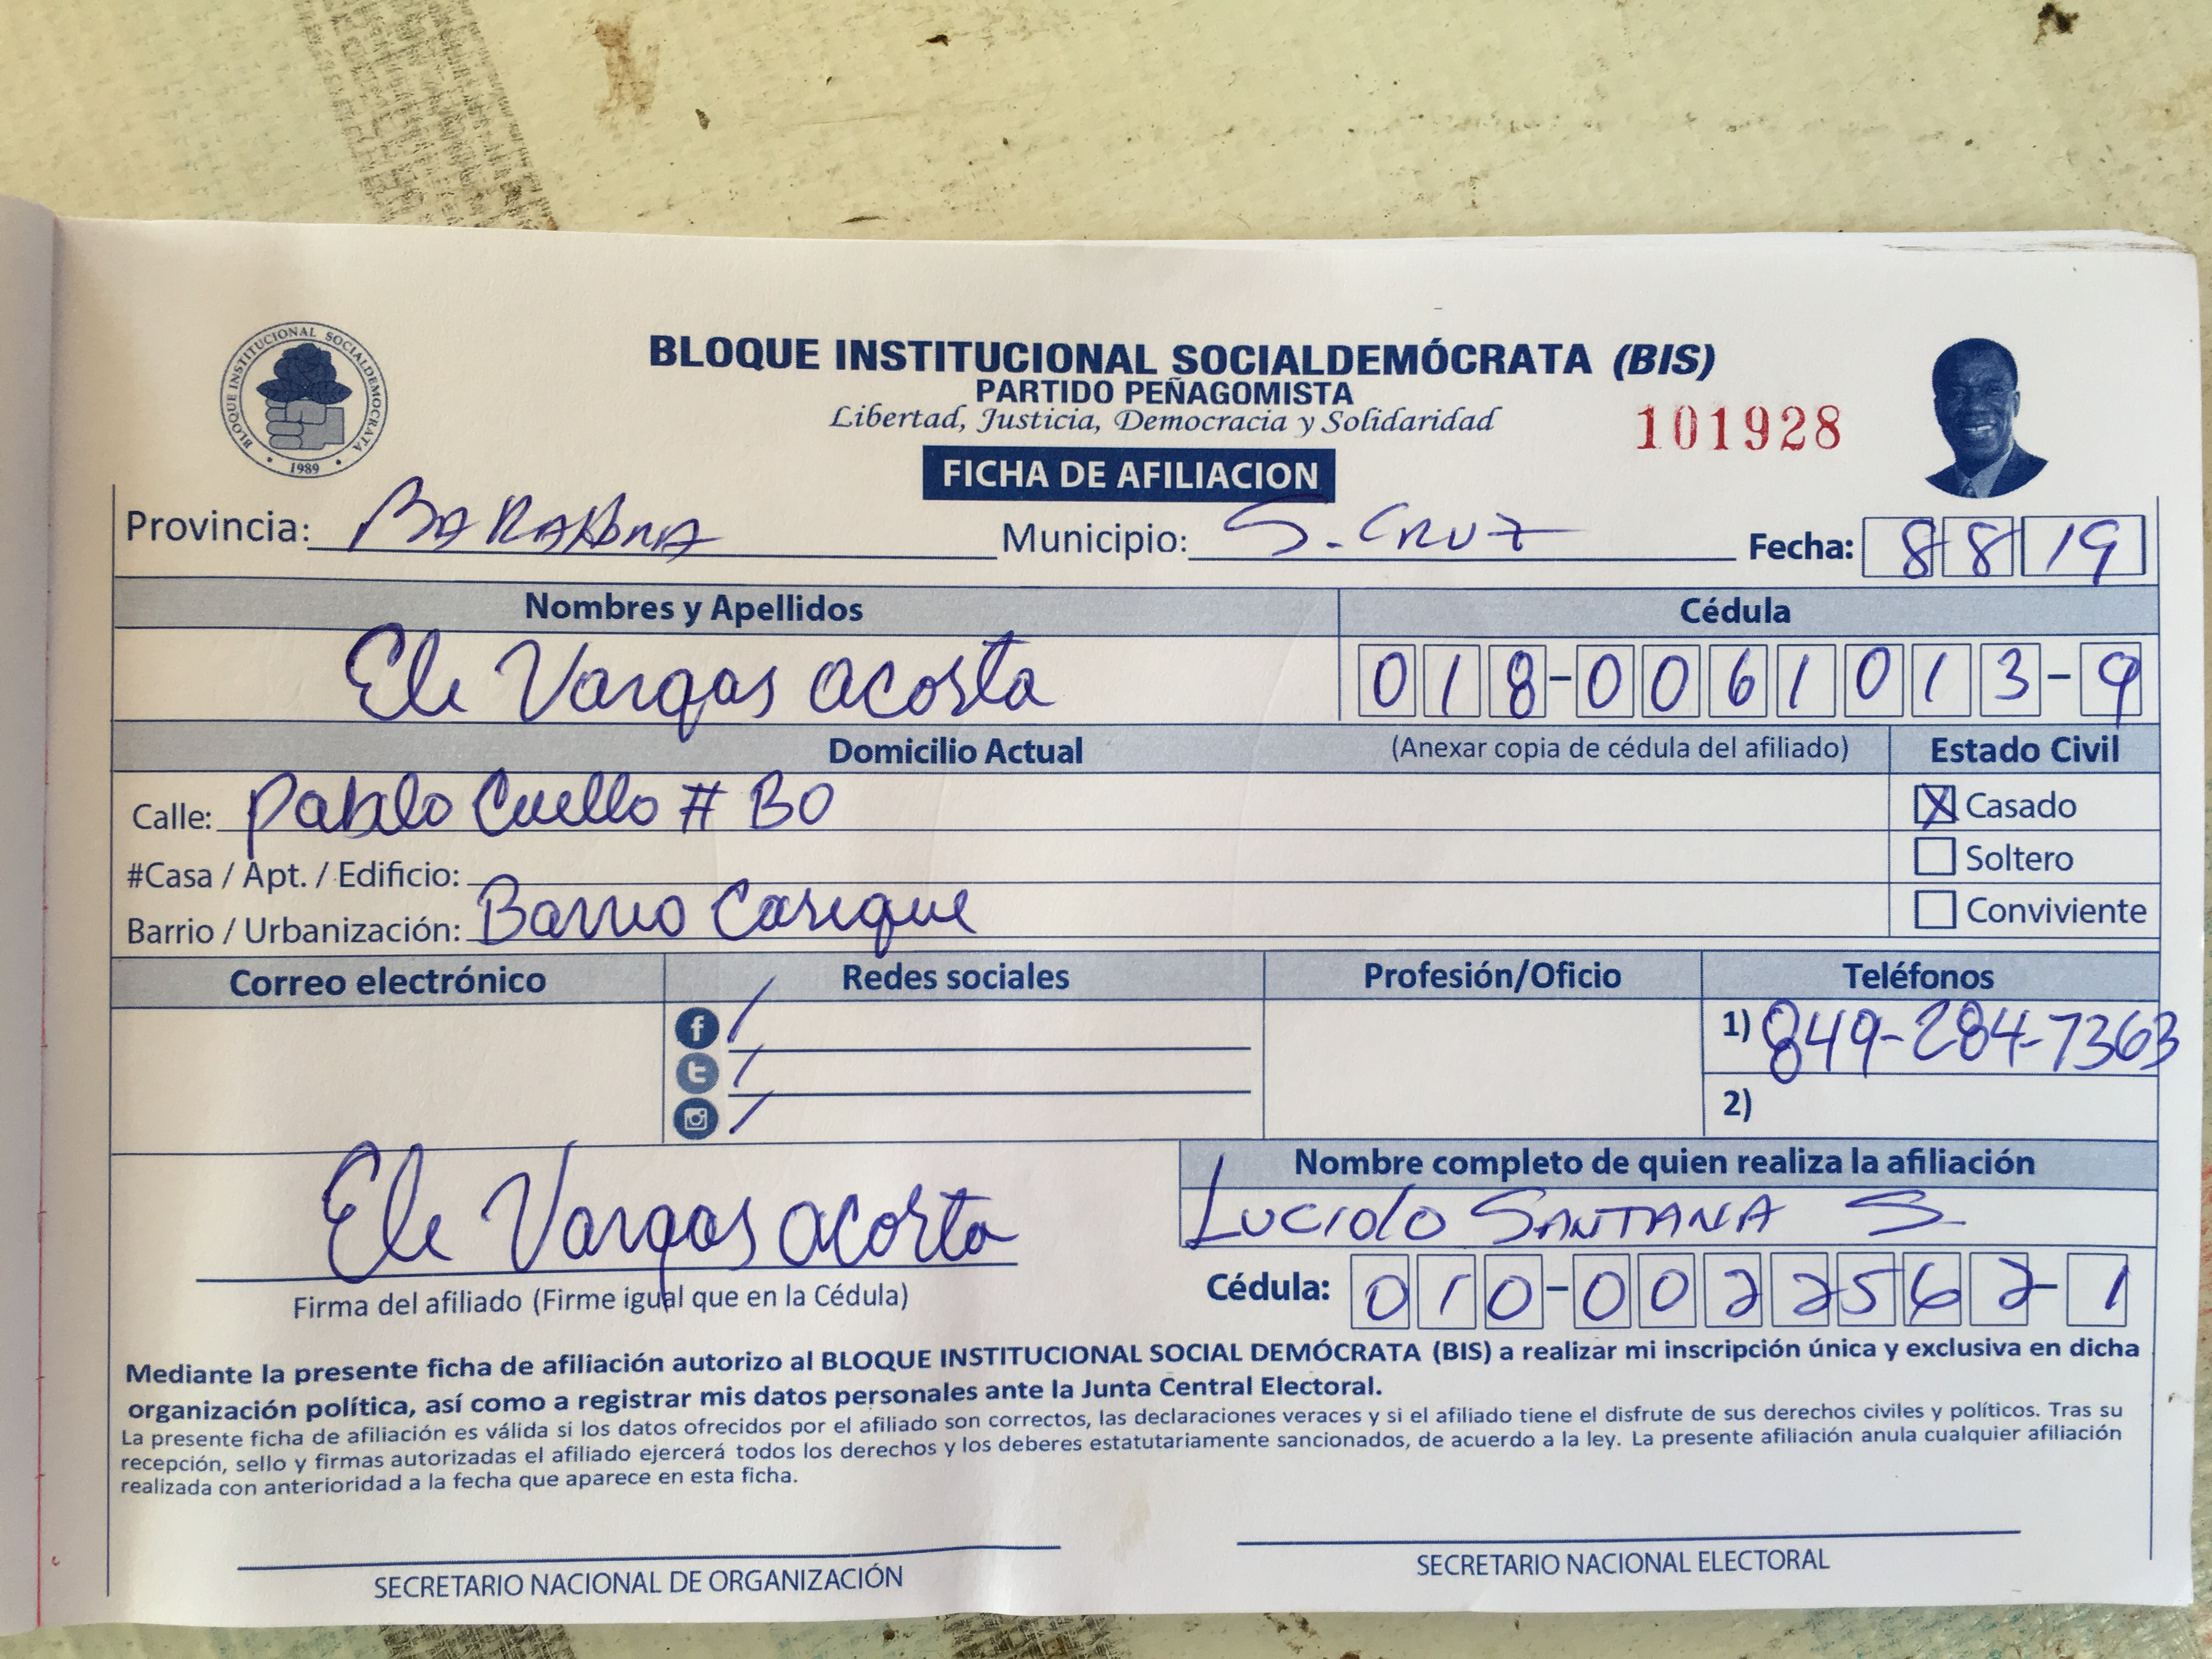 BLOQUE INSTITUCIONAL SOCIALDEMOCRATA
• 1989 •
BLOQUE INSTITUCIONAL SOCIALDEMÓCRATA (BIS)
PARTIDO PEÑAGOMISTA
Libertad, Justicia, Democracia y Solidaridad
101928
FICHA DE AFILIACION
Provincia: BARAHONA Municipio: S. CRUZ Fecha: 8 8 19
Nombres y Apellidos Cédula
Ele Vargas acosta 018-0061013-9
Domicilio Actual (Anexar copia de cédula del afiliado) Estado Civil
Calle: Pablo Cuello # BO X Casado
#Casa / Apt. / Edificio: Soltero
Barrio / Urbanización: Barrio Casique Conviviente
Correo electrónico Redes sociales Profesión/Oficio Teléfonos
f / 1) 849-284-7363
t /
/ 2)
Nombre completo de quien realiza la afiliación
Ele Vargas acosta Lucido SANTANA S.
Firma del afiliado (Firme igual que en la Cédula) Cédula: 010-0022562-1
Mediante la presente ficha de afiliación autorizo al BLOQUE INSTITUCIONAL SOCIAL DEMÓCRATA (BIS) a realizar mi inscripción única y exclusiva en dicha
organización política, así como a registrar mis datos personales ante la Junta Central Electoral.
La presente ficha de afiliación es válida si los datos ofrecidos por el afiliado son correctos, las declaraciones veraces y si el afiliado tiene el disfrute de sus derechos civiles y políticos. Tras su
recepción, sello y firmas autorizadas el afiliado ejercerá todos los derechos y los deberes estatutariamente sancionados, de acuerdo a la ley. La presente afiliación anula cualquier afiliación
realizada con anterioridad a la fecha que aparece en esta ficha.
SECRETARIO NACIONAL DE ORGANIZACIÓN SECRETARIO NACIONAL ELECTORAL